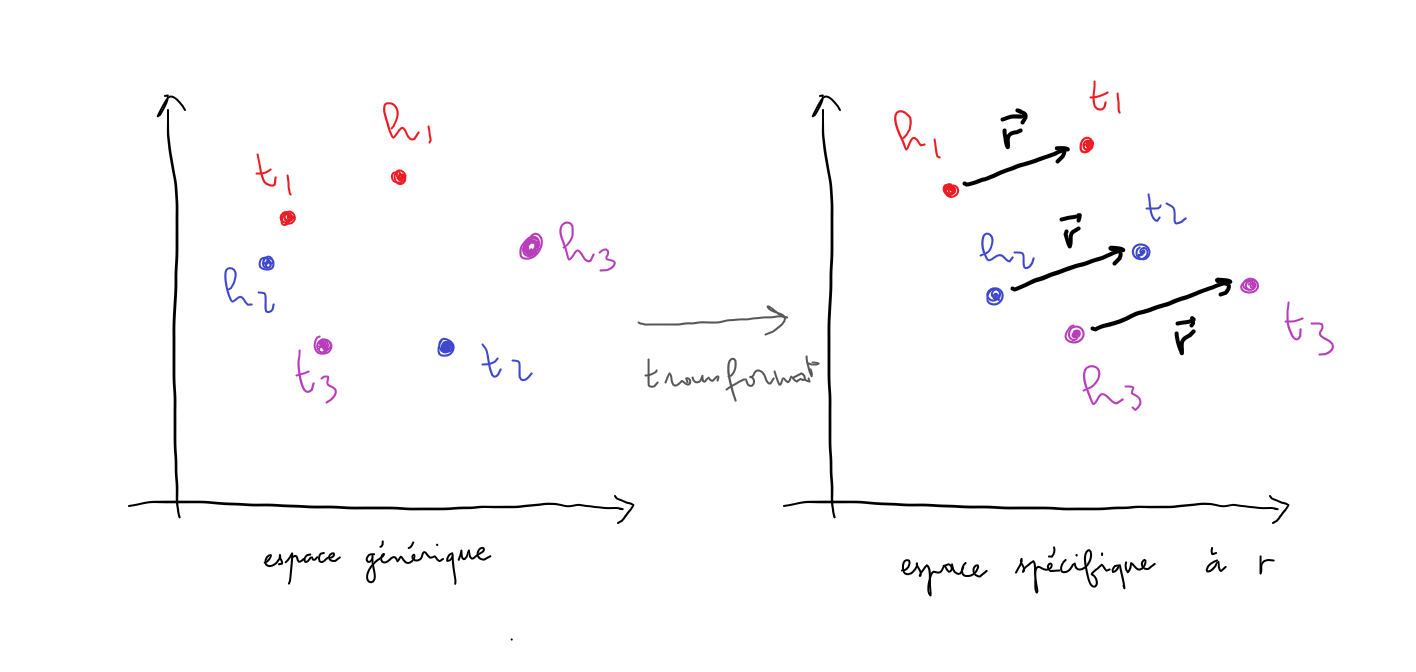 h1
t1
h2
h3
t3
t2
espace générique
transformat
h1
r
t1
h2
r
t2
h3
r
t3
espace spécifique à r